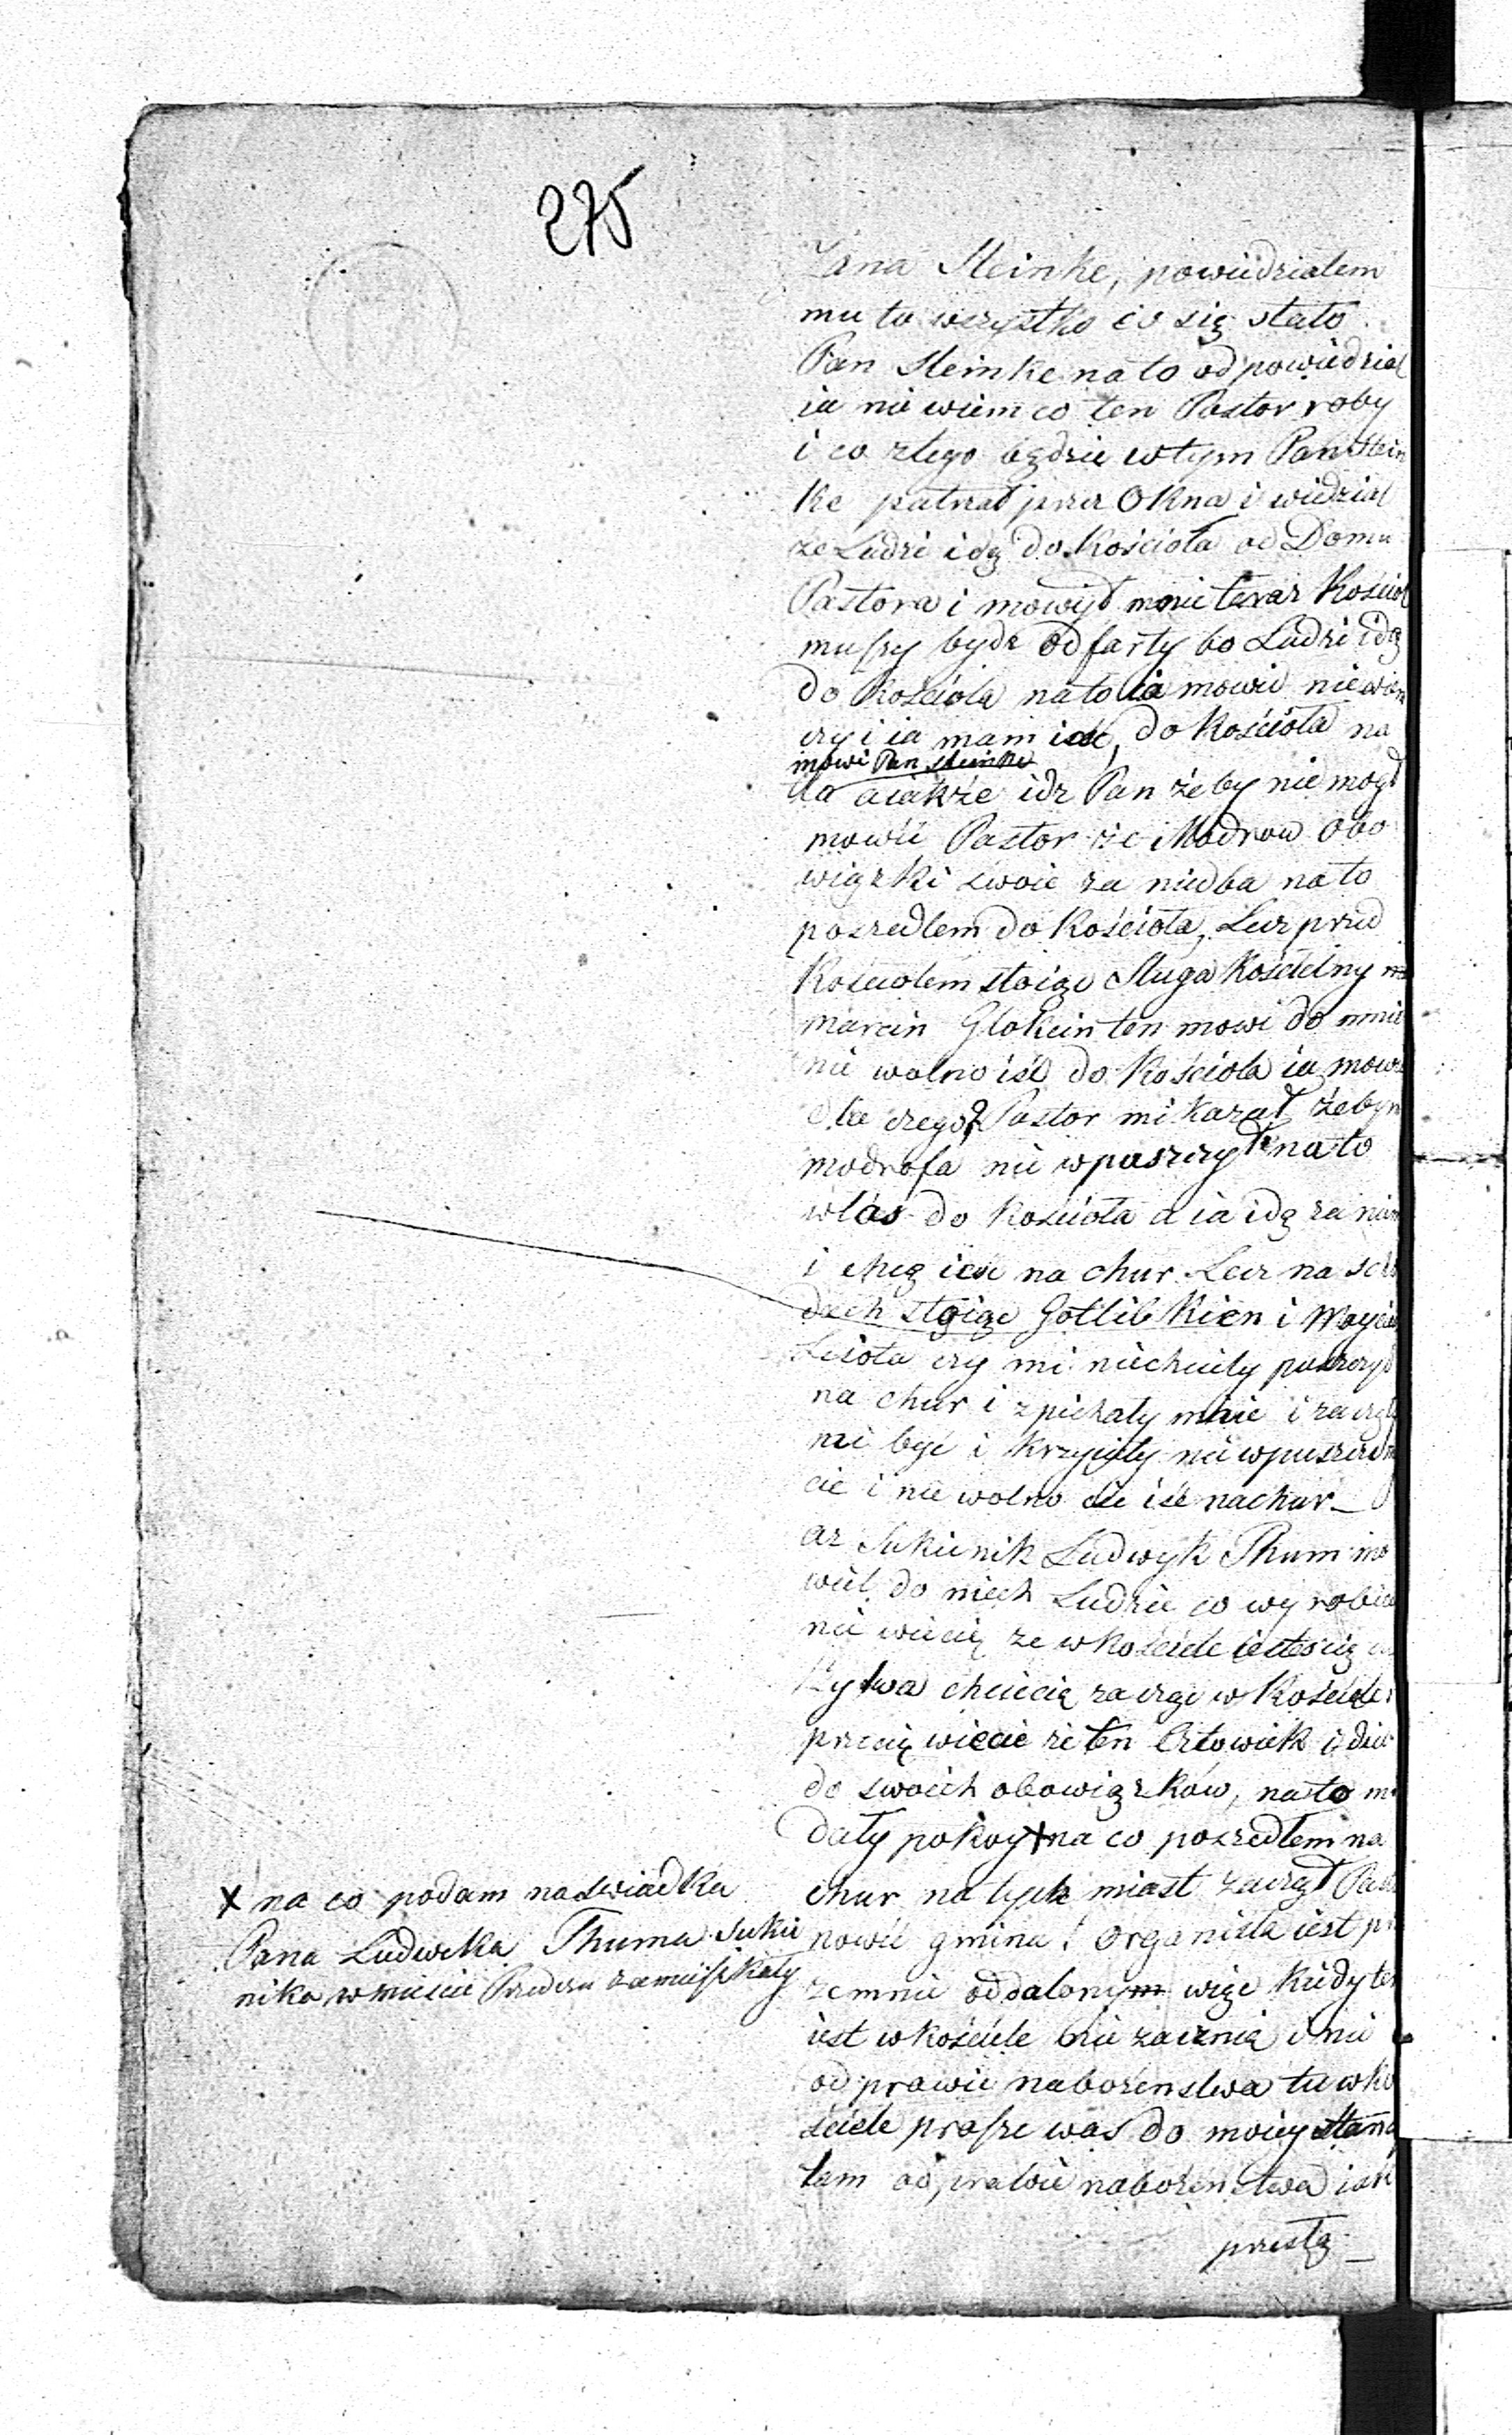 275
Jana Steinke, powiedzialem
mu to wszystko co się stało
Pan Steinke na to odpowiedzial
ia nie wiem co ten Pastor roby
i co zlego będzie wtym Pan Stein
ke patrzał przez Okna i widzial
ze Ludzi idą do Kościoła od Domu
Pastora i mowył mnie teraz Kościoł
mussy bydz odfarty bo Ludzi idą
do Kościola na to ia mowie nie wiem
czy i ia mam iść, do Kościoła na
mowi Pan Steinke
to aiakże idz Pan żeby nie mogł
mowić Pastor że Modrow Obo
wiązki swoie za niedba na to
poszedlem do Kościoła, Lecz przed
Kosciolem stoiąc Sługa Kościelny
marcin Glokein ten mowi do mnie
nie wolno iśc do Kościola ia mowi
dla czego? Pastor mi Kazał żebym
modrofa nie wpuszczył na to
wlas do Kosciola a ia idę za nim
i chcę iść na chur Lecz na scho
dach stoiąc Gottlib Kien i Woycie
Sciola czy mi niechcieły puszczyć
na chur i zpichaly mnie i zaczęły
mi być i krzyczyły nie wpuszczem
cie i nie wolno cie iśc nachur_
az Sukienik Ludwyk Thum mo
wiel do niech Ludzie co wy robicie
nie wiecię ze wkościele iesteścię
Bytwa chciecię zacząc w Kościele
przecię wiecie że ten Człowiek idzie
do swoich obowiązków, na to m
daly pokoy X na co poszedlem na
chur na tych miast zaczął Pas
mowić gmina! Organista iest pr
zemnie oddalony więc kiedy ten
iest w kościele nie zacznię i nie
odprawie nabożenstwa tu w Ko
ściele prosze was do moiey stanc
tam odprawie nabożenstwa iak
przestą_
X na co podam na swiadka
Pana Ludwika Thuma Sukie
nika w miescie Przedczu zamieszkały